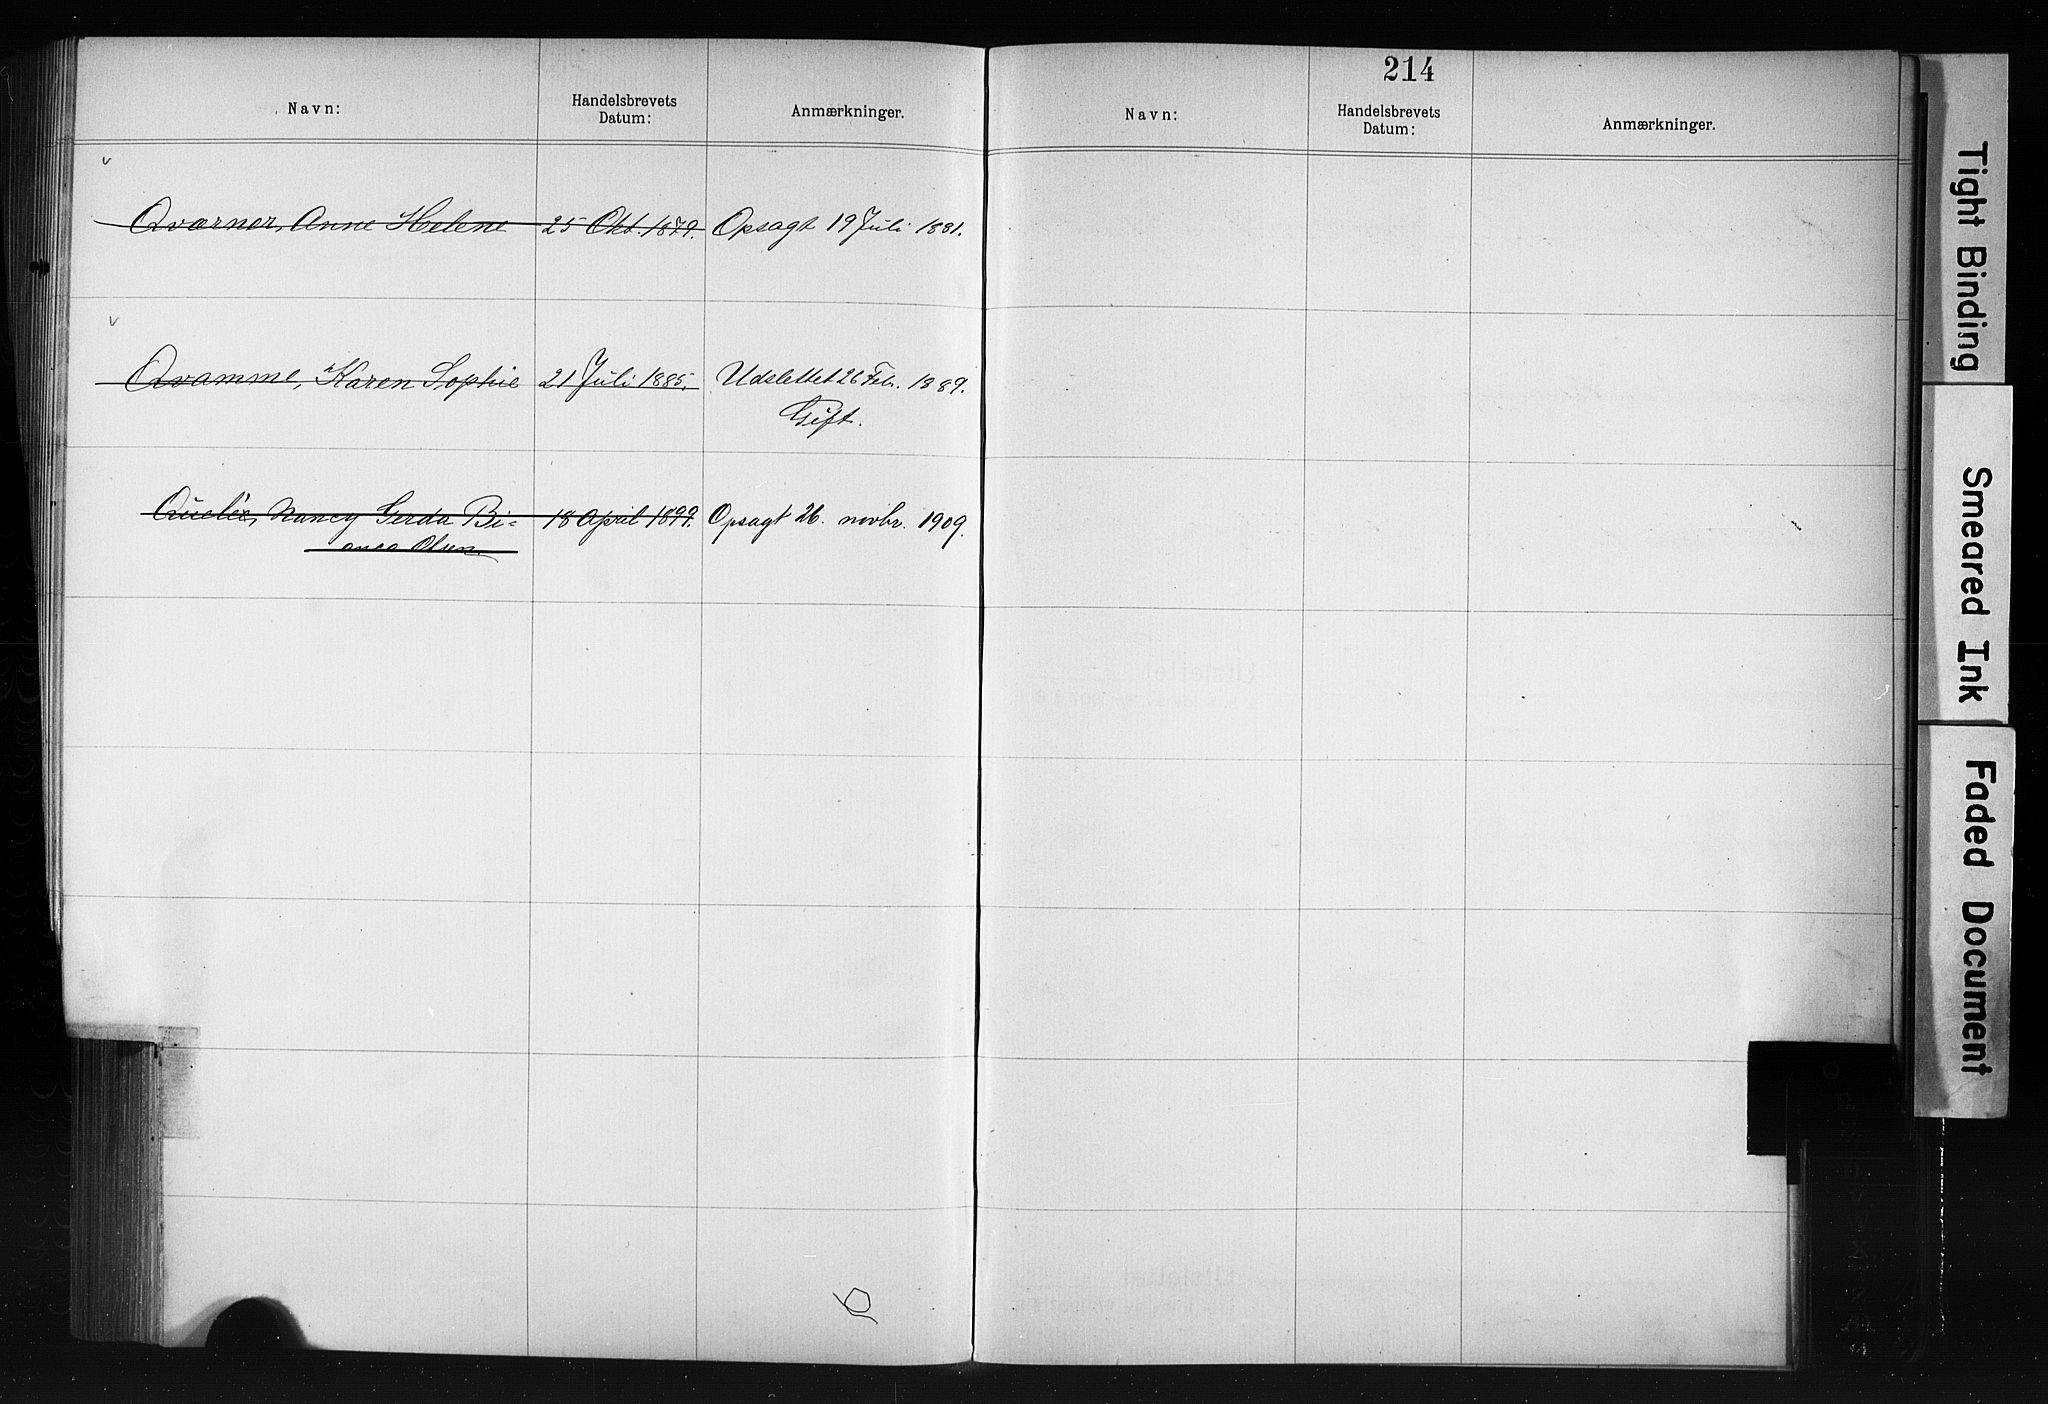 Navn:
Handelsbrevets
Datum:
Anmærkninger.
Qværner, Anne Helene 25 Okt. 1879. Opsagt 19 Juli 1881.
Qvamme, Karen Sophie 21 Juli 1885. Udslettet 26 Feb. 1889.
Gift.
Nancy Gerda Bi- 18 April 1899. Opsagt 26. novbr. 1909.
anca Olsen.
214
Navn:
Handelsbrevets
Datum:
Anmærkninger.
Tight Binding
Smeared Ink
Faded Document